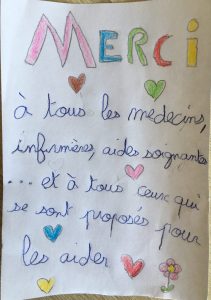 MERCi
à tous les medecins,
infirmières, aides soignantes
... et à tous ceux qui
se sont proposés pour
les aider